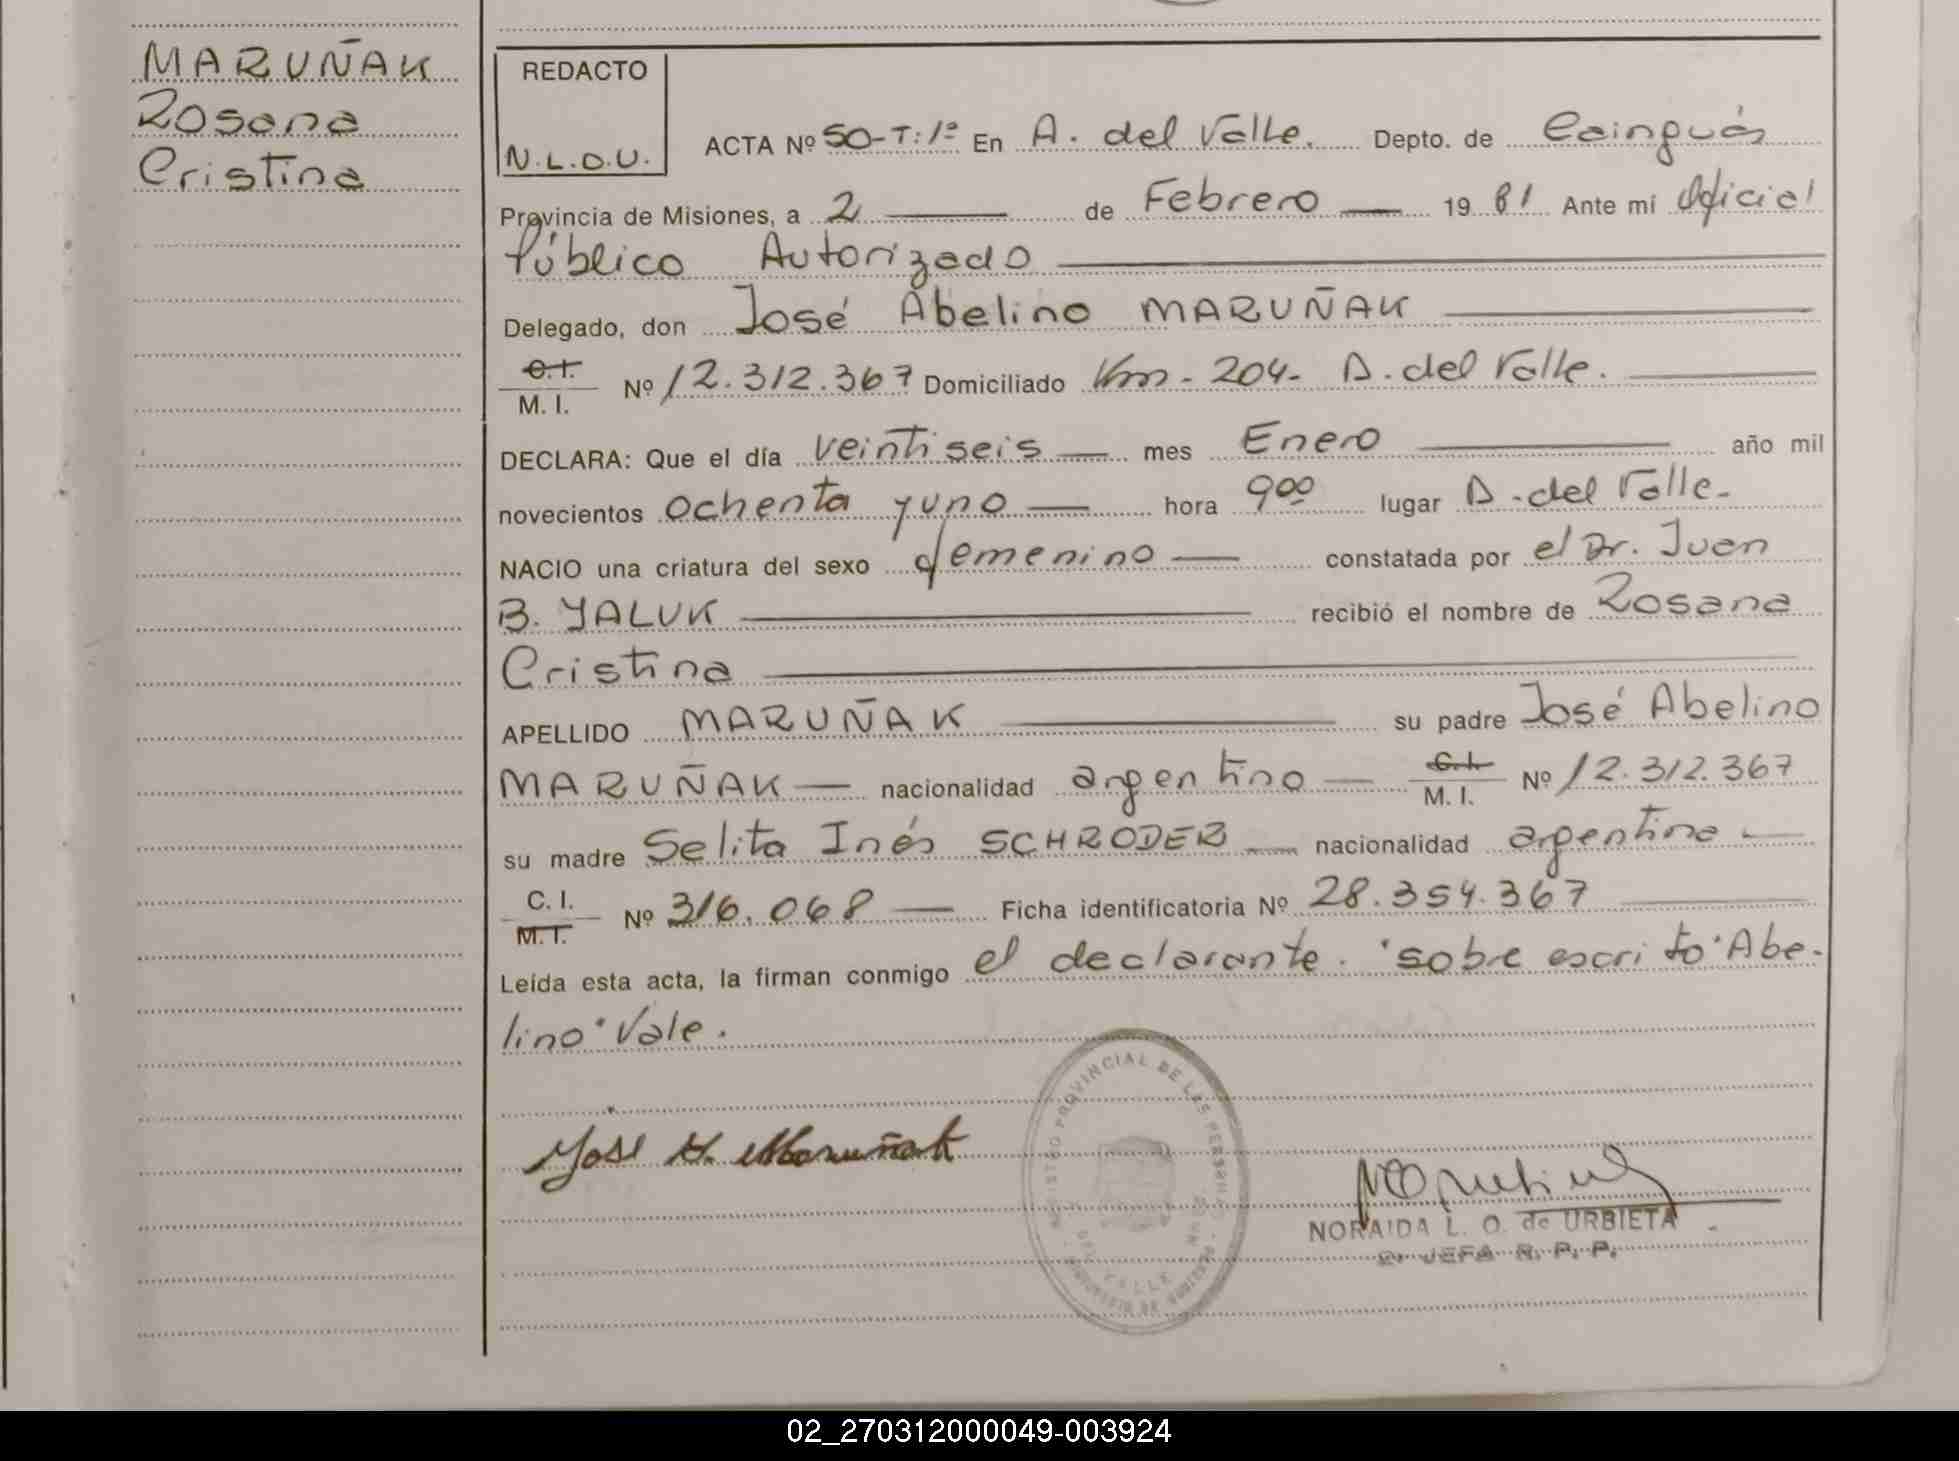 MARUÑAK
Rosana
Cristina
REDACTO
N.L.O.U.
ACTA Nº 50-T:1º En A. del Valle. Depto. de Cainguás
Provincia de Misiones, a 2 de Febrero 1981 Ante mí Oficial
Público Autorizado
Delegado, don José Abelino MARUÑAK
C.I.
M. I. Nº 12.312.367 Domiciliado Km - 204- A. del Valle.
DECLARA: Que el día veintiseis mes Enero año mil
novecientos ochenta y uno hora 9ºº lugar A. del Valle.
NACIO una criatura del sexo femenino constatada por el Dr. Juan
B. YALUK recibió el nombre de Rosana
Cristina
APELLIDO MARUÑAK su padre José Abelino
MARUÑAK nacionalidad argentino C.I. M. I. Nº 12.312.367
su madre Selita Inés SCHRODER nacionalidad argentina
C. I.
M. I. Nº 316.068 Ficha identificatoria Nº 28.354.367
Leída esta acta, la firman conmigo el declarante. "sobre escrito" Abe-
lino" Vale.
José A. Maruñak
REGISTRO PROVINCIAL DE LAS PERSONAS
DEL VALLE
NORAIDA L. O. de URBIETA
JEFA R. P. P.
02_270312000049-003924